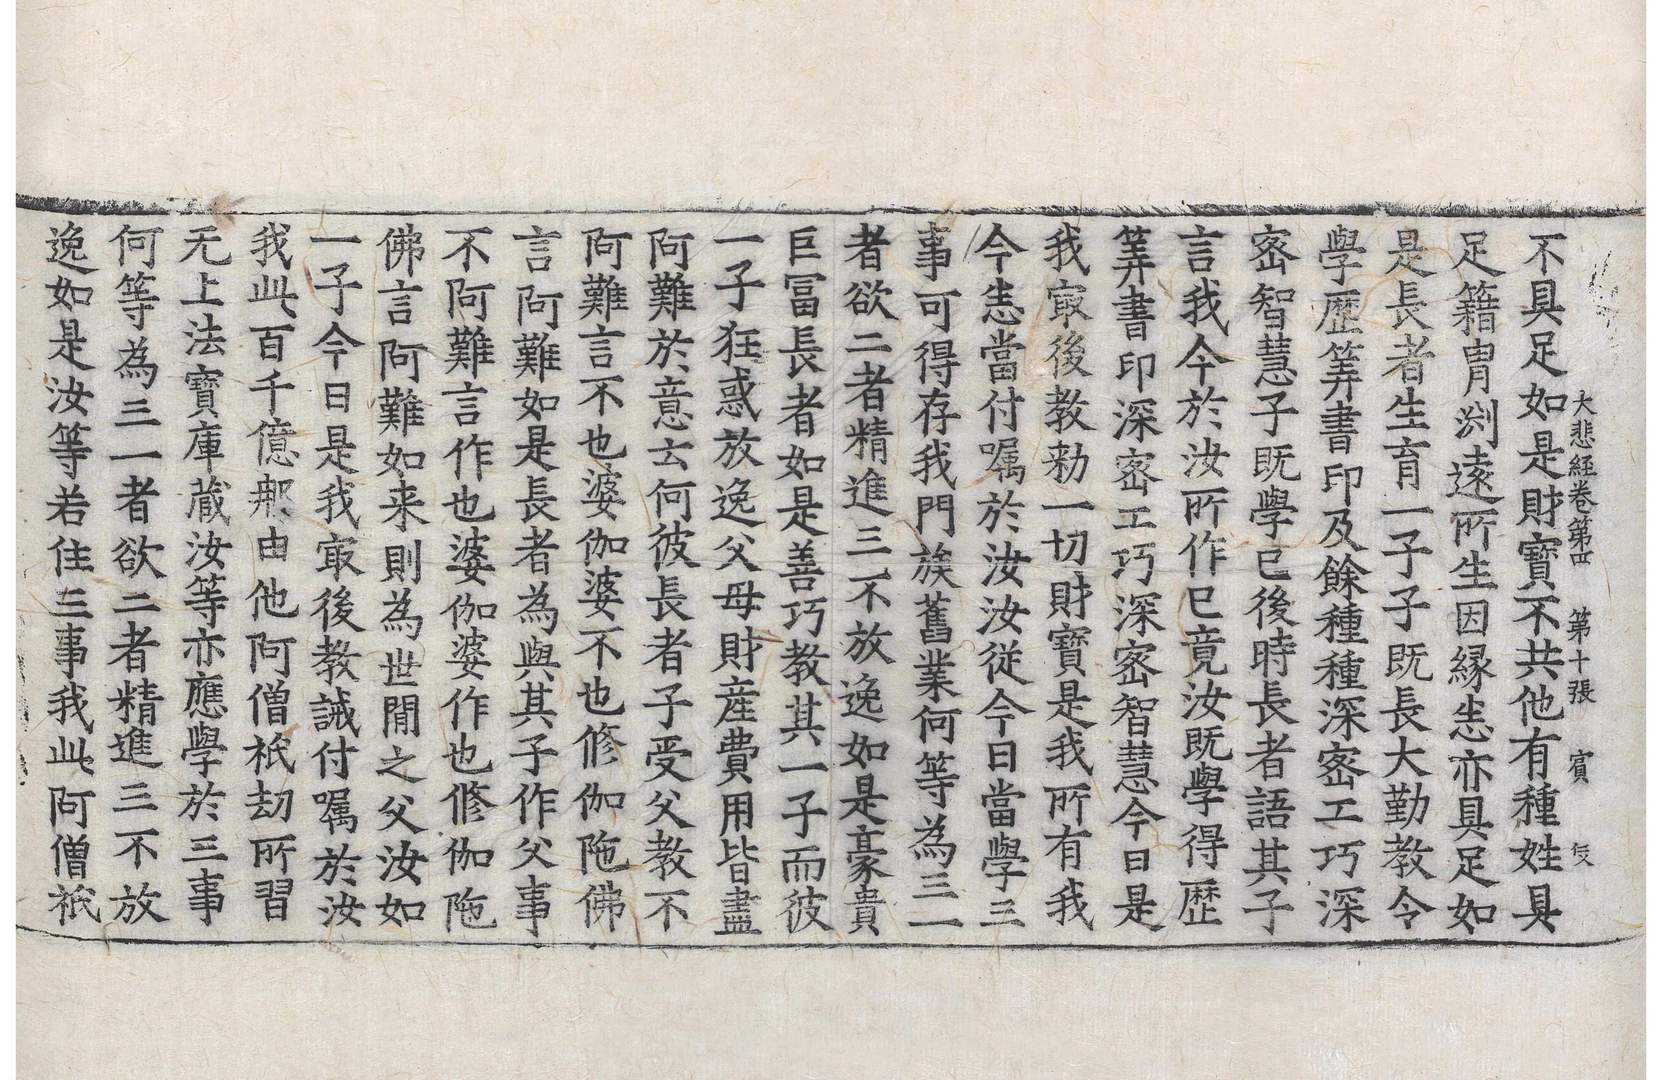 大悲經卷第四 第十張 賓
不具足如是財寶不共他有種姓具
足籍胄渕遠所生因縁悉亦具足如
是長者生育一子子既長大勤教令
學歷筭書印及餘種種深密工巧深
密智慧子既學已後時長者語其子
言我今於汝所作已竟汝既學得歷
筭書印深密工巧深密智慧今日是
我㝡後教勑一切財寶是我所有我
今悉當付嘱於汝汝從今日當學三
事可得存我門族舊業何等為三一
者欲二者精進三不放逸如是豪貴
巨冨長者如是善巧教其一子而彼
一子狂惑放逸父母財産費用皆盡
阿難於意云何彼長者子受父教不
阿難言不也婆伽婆不也修伽陁佛
言阿難如是長者為與其子作父事
不阿難言作也婆伽婆作也修伽陁
佛言阿難如来則為世間之父汝如
一子今日是我㝡後教誡付嘱於汝
我此百千億那由他阿僧祇劫所習
无上法寶庫蔵汝等亦應學於三事
何等為三一者欲二者精進三不放
逸如是汝等若住三事我此阿僧祇